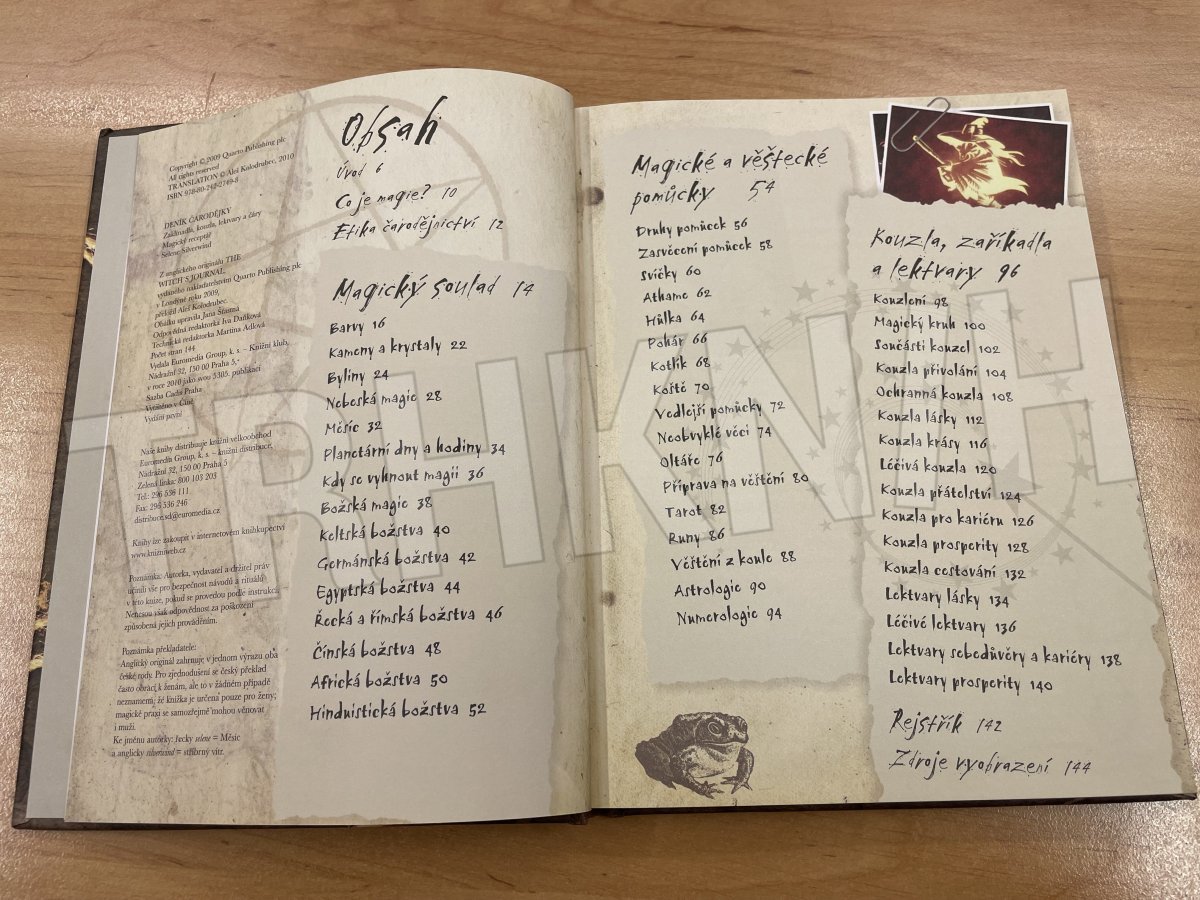 Copyright © 2009 Quarto Publishing plc
All rights reserved
TRANSLATION © Aleš Kolodrubec, 2010
ISBN 978-80-242-2749-8
DENÍK ČARODĚJKY
Zaklínadla, kouzla, lektvary a čáry
Magický receptář
Selene Silverwind
Z anglického originálu THE
WITCH'S JOURNAL
vydaného nakladatelstvím Quarto Publishing plc
v Londýně roku 2009,
přeložil Aleš Kolodrubec.
Obálku upravila Jana Šťastná
Odpovědná redaktorka Iva Daňková
Technická redaktorka Martina Adlová
Počet stran 144
Vydala Euromedia Group, k. s. – Knižní klub,
Nádražní 32, 150 00 Praha 5,
v roce 2010 jako svou 5305. publikaci
Sazba Cadis Praha
Vytištěno v Číně
Vydání první
Naše knihy distribuuje knižní velkoobchod
Euromedia Group, k. s. – knižní distribuce,
Nádražní 32, 150 00 Praha 5
Zelená linka: 800 103 203
Tel.: 296 536 111
Fax: 296 536 246
distribuce.sd@euromedia.cz
Knihy lze zakoupit v internetovém knihkupectví
www.knizniweb.cz
Poznámka: Autorka, vydavatel a držitel práv
učinili vše pro bezpečnost návodů a rituálů
v této knize, pokud se provedou podle instrukcí.
Nenesou však odpovědnost za poškození
způsobená jejich prováděním.
Poznámka překladatele:
Anglický originál zahrnuje v jednom výrazu oba
české rody. Pro zjednodušení se český překlad
často obrací k ženám, ale to v žádném případě
neznamená, že knížka je určena pouze pro ženy;
magické praxi se samozřejmě mohou věnovat
i muži.
Ke jménu autorky: řecky selene = Měsíc
a anglicky silverwind = stříbrný vítr.
Obsah
Úvod 6
Co je magie? 10
Etika čarodějnictví 12
Magický soulad 14
Barvy 16
Kameny a krystaly 22
Byliny 24
Nebeská magie 28
Měsíc 32
Planetární dny a hodiny 34
Kdy se vyhnout magii 36
Božská magie 38
Keltská božstva 40
Germánská božstva 42
Egyptská božstva 44
Řecká a římská božstva 46
Čínská božstva 48
Africká božstva 50
Hinduistická božstva 52
Magické a věštecké
pomůcky 54
Druhy pomůcek 56
Zasvěcení pomůcek 58
Svíčky 60
Athame 62
Hůlka 64
Pohár 66
Kotlík 68
Koště 70
Vedlejší pomůcky 72
Neobvyklé věci 74
Oltáře 76
Příprava na věštění 80
Tarot 82
Runy 86
Věštění z koule 88
Astrologie 90
Numerologie 94
Kouzla, zaříkadla
a lektvary 96
Kouzlení 98
Magický kruh 100
Součásti kouzel 102
Kouzla přivolání 104
Ochranná kouzla 108
Kouzla lásky 112
Kouzla krásy 116
Léčivá kouzla 120
Kouzla přátelství 124
Kouzla pro kariéru 126
Kouzla prosperity 128
Kouzla cestování 132
Lektvary lásky 134
Léčivé lektvary 136
Lektvary sebedůvěry a kariéry 138
Lektvary prosperity 140
Rejstřík 142
Zdroje vyobrazení 144
TRHKNIH